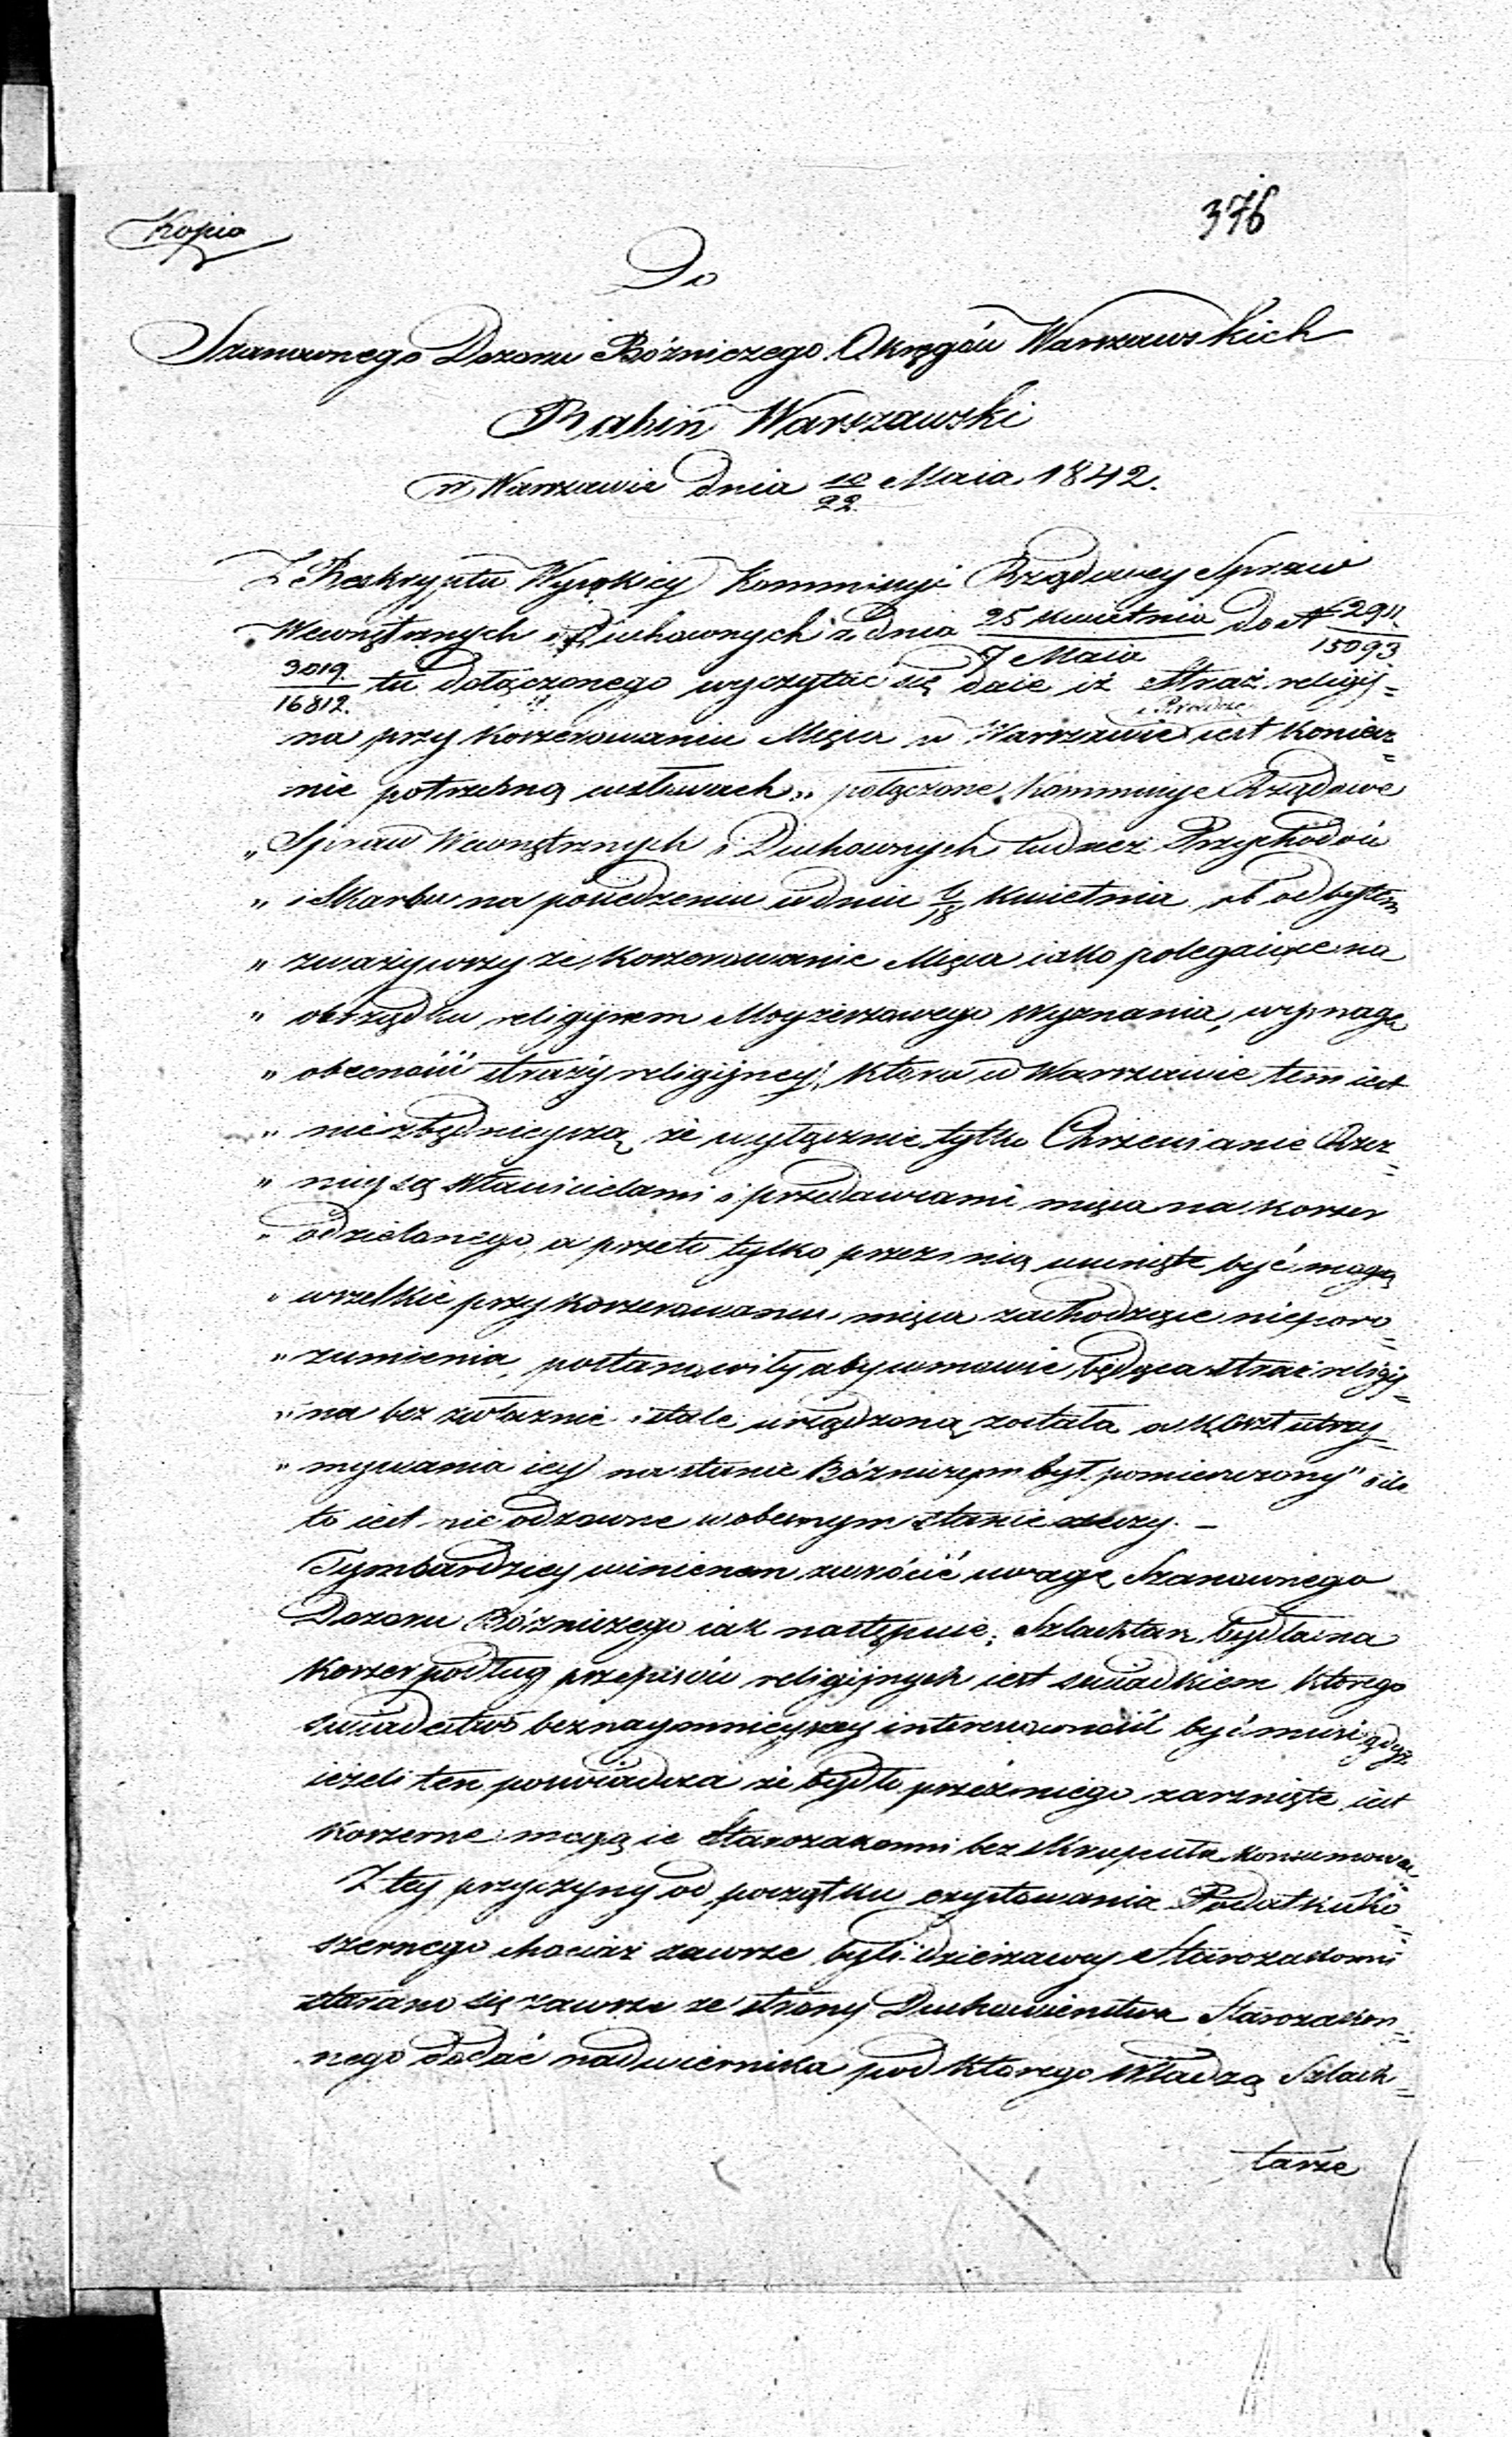 Kopia
376
Do
Szanownego Dozoru Bóżniczego Okręgów Warszawskich
Rabin Warszawski
w Warszawie dnia 10/22 Maia 1842.
Z Reskryptu Wysokiey Kommissyi Rządowey Spraw
Wewnętrznych i Duchownych z dnia 25 Kwietnia / 7 Maia do № 2911/15093
3019/16812. tu dołączonego wyczytać się daie iż Straż religiy=
na przy Koszerowaniu Mięsa w Warszawie i Pradze iest koniecz=
nie potrzebną w słowach „ połączone Kommissye Rządowe
„ Spraw Wewnętrznych i Duchownych tudzież Przychodów
„ i Skarbu na posiedzeniu w dniu 6/18 Kwietnia rb odbytem
„ zważywszy że Koszerowanie Mięsa iako polegaiące na
„ obrządku religiynem Moyżeszowego Wyznania, wymaga
„ obecności straży religiyney, która w Warszawie tem iest
„ niezbędnieyszą że wyłącznie tylko Chrześcianie Rzeź=
„ nicy są właścicielami i przedawcami mięsa na koszer
„ odzielonego, a przeto tylko przez nią usunięte być mogą
„ wszelkie przy koszerowaniu mięsa zachodzące nieporo=
„ zumienia, postanowiły aby w mowie będąca straż religiy=
„ na bezzwłocznie i stale urządzoną została a koszt utrzy=
„ mywania iey na etacie Bóżniczym był pomieszczony" ile
to iest nieodzowne w obecnym stanie rzeczy. —
Tymbardziey winienem zwrócić uwagę Szanownego
Dozoru Bóżniczego iak następuie: Szlachtarz bydła na
koszer podług przepisów religiynych iest świadkiem którego
świadectwo bez naymnieyszey interesowności być musi gdyż
ieżeli ten poświadcza że bydło przez niego zarznięte iest
koszerne mogą ie Starozakonni bez skrupułu konsumować
Z tey przyczyny od początku exystowania Podatku ko=
szernego chociaż zawsze byli dzierżawcy Starozakonni
starano się zawsze ze strony Duchowieństwa Starozakon=
nego dodać nadwiernika pod którego władzą Szlach=
tarze